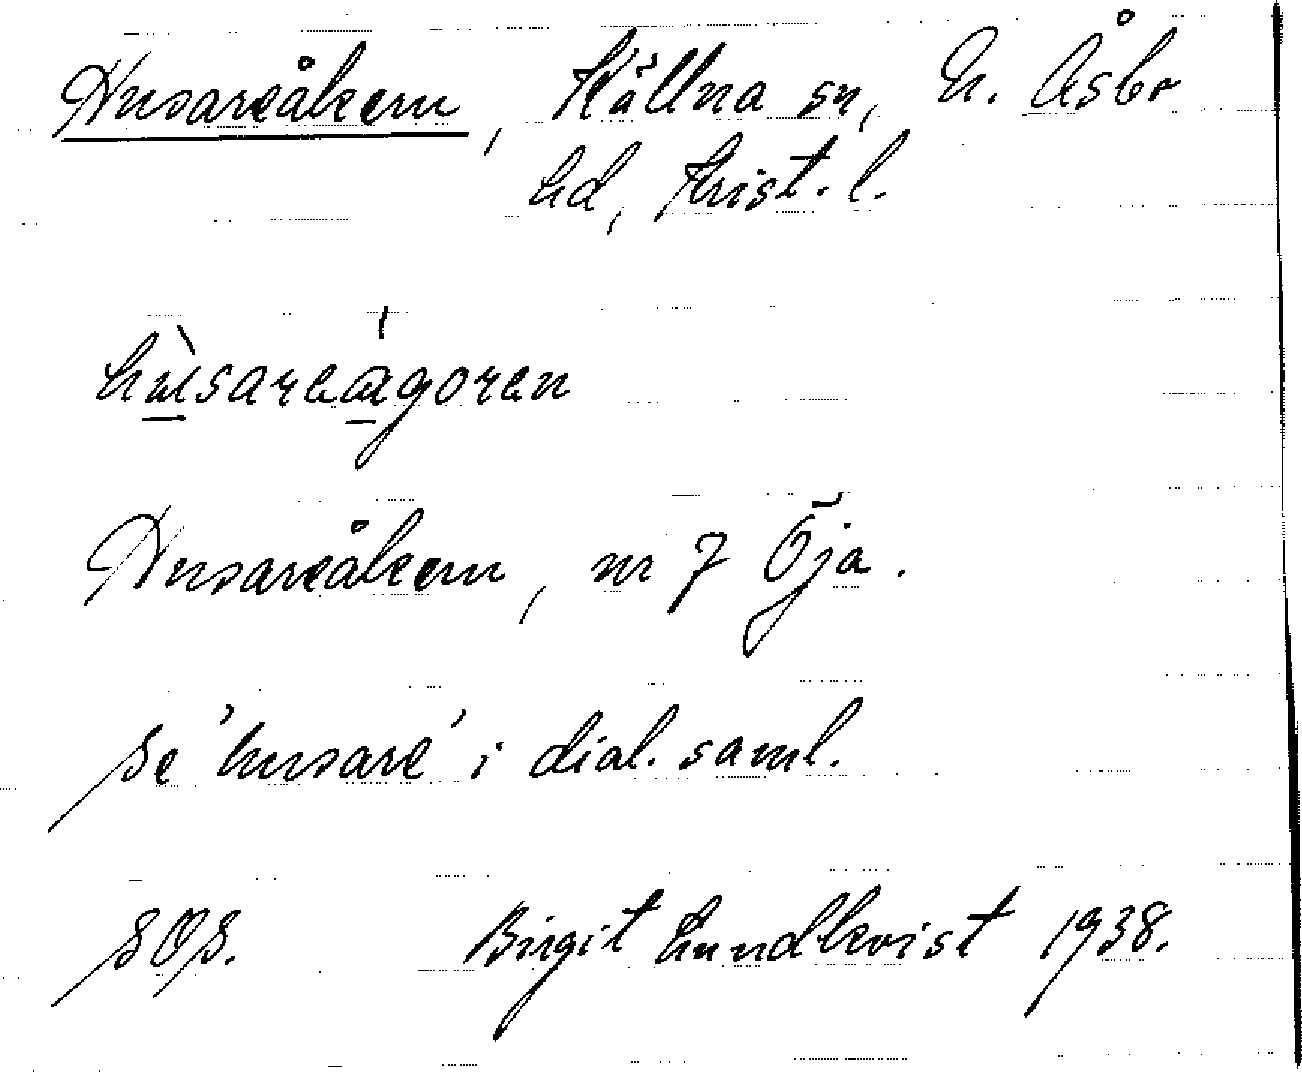 Husareåkern, Källna sn, N. Åsbo
hd, Krist. l.
hùsareágoren
Husareåkern, nr 7 Öja.
se 'husare' i dial. saml.
SOS. Birgit Lundkvist 1938.